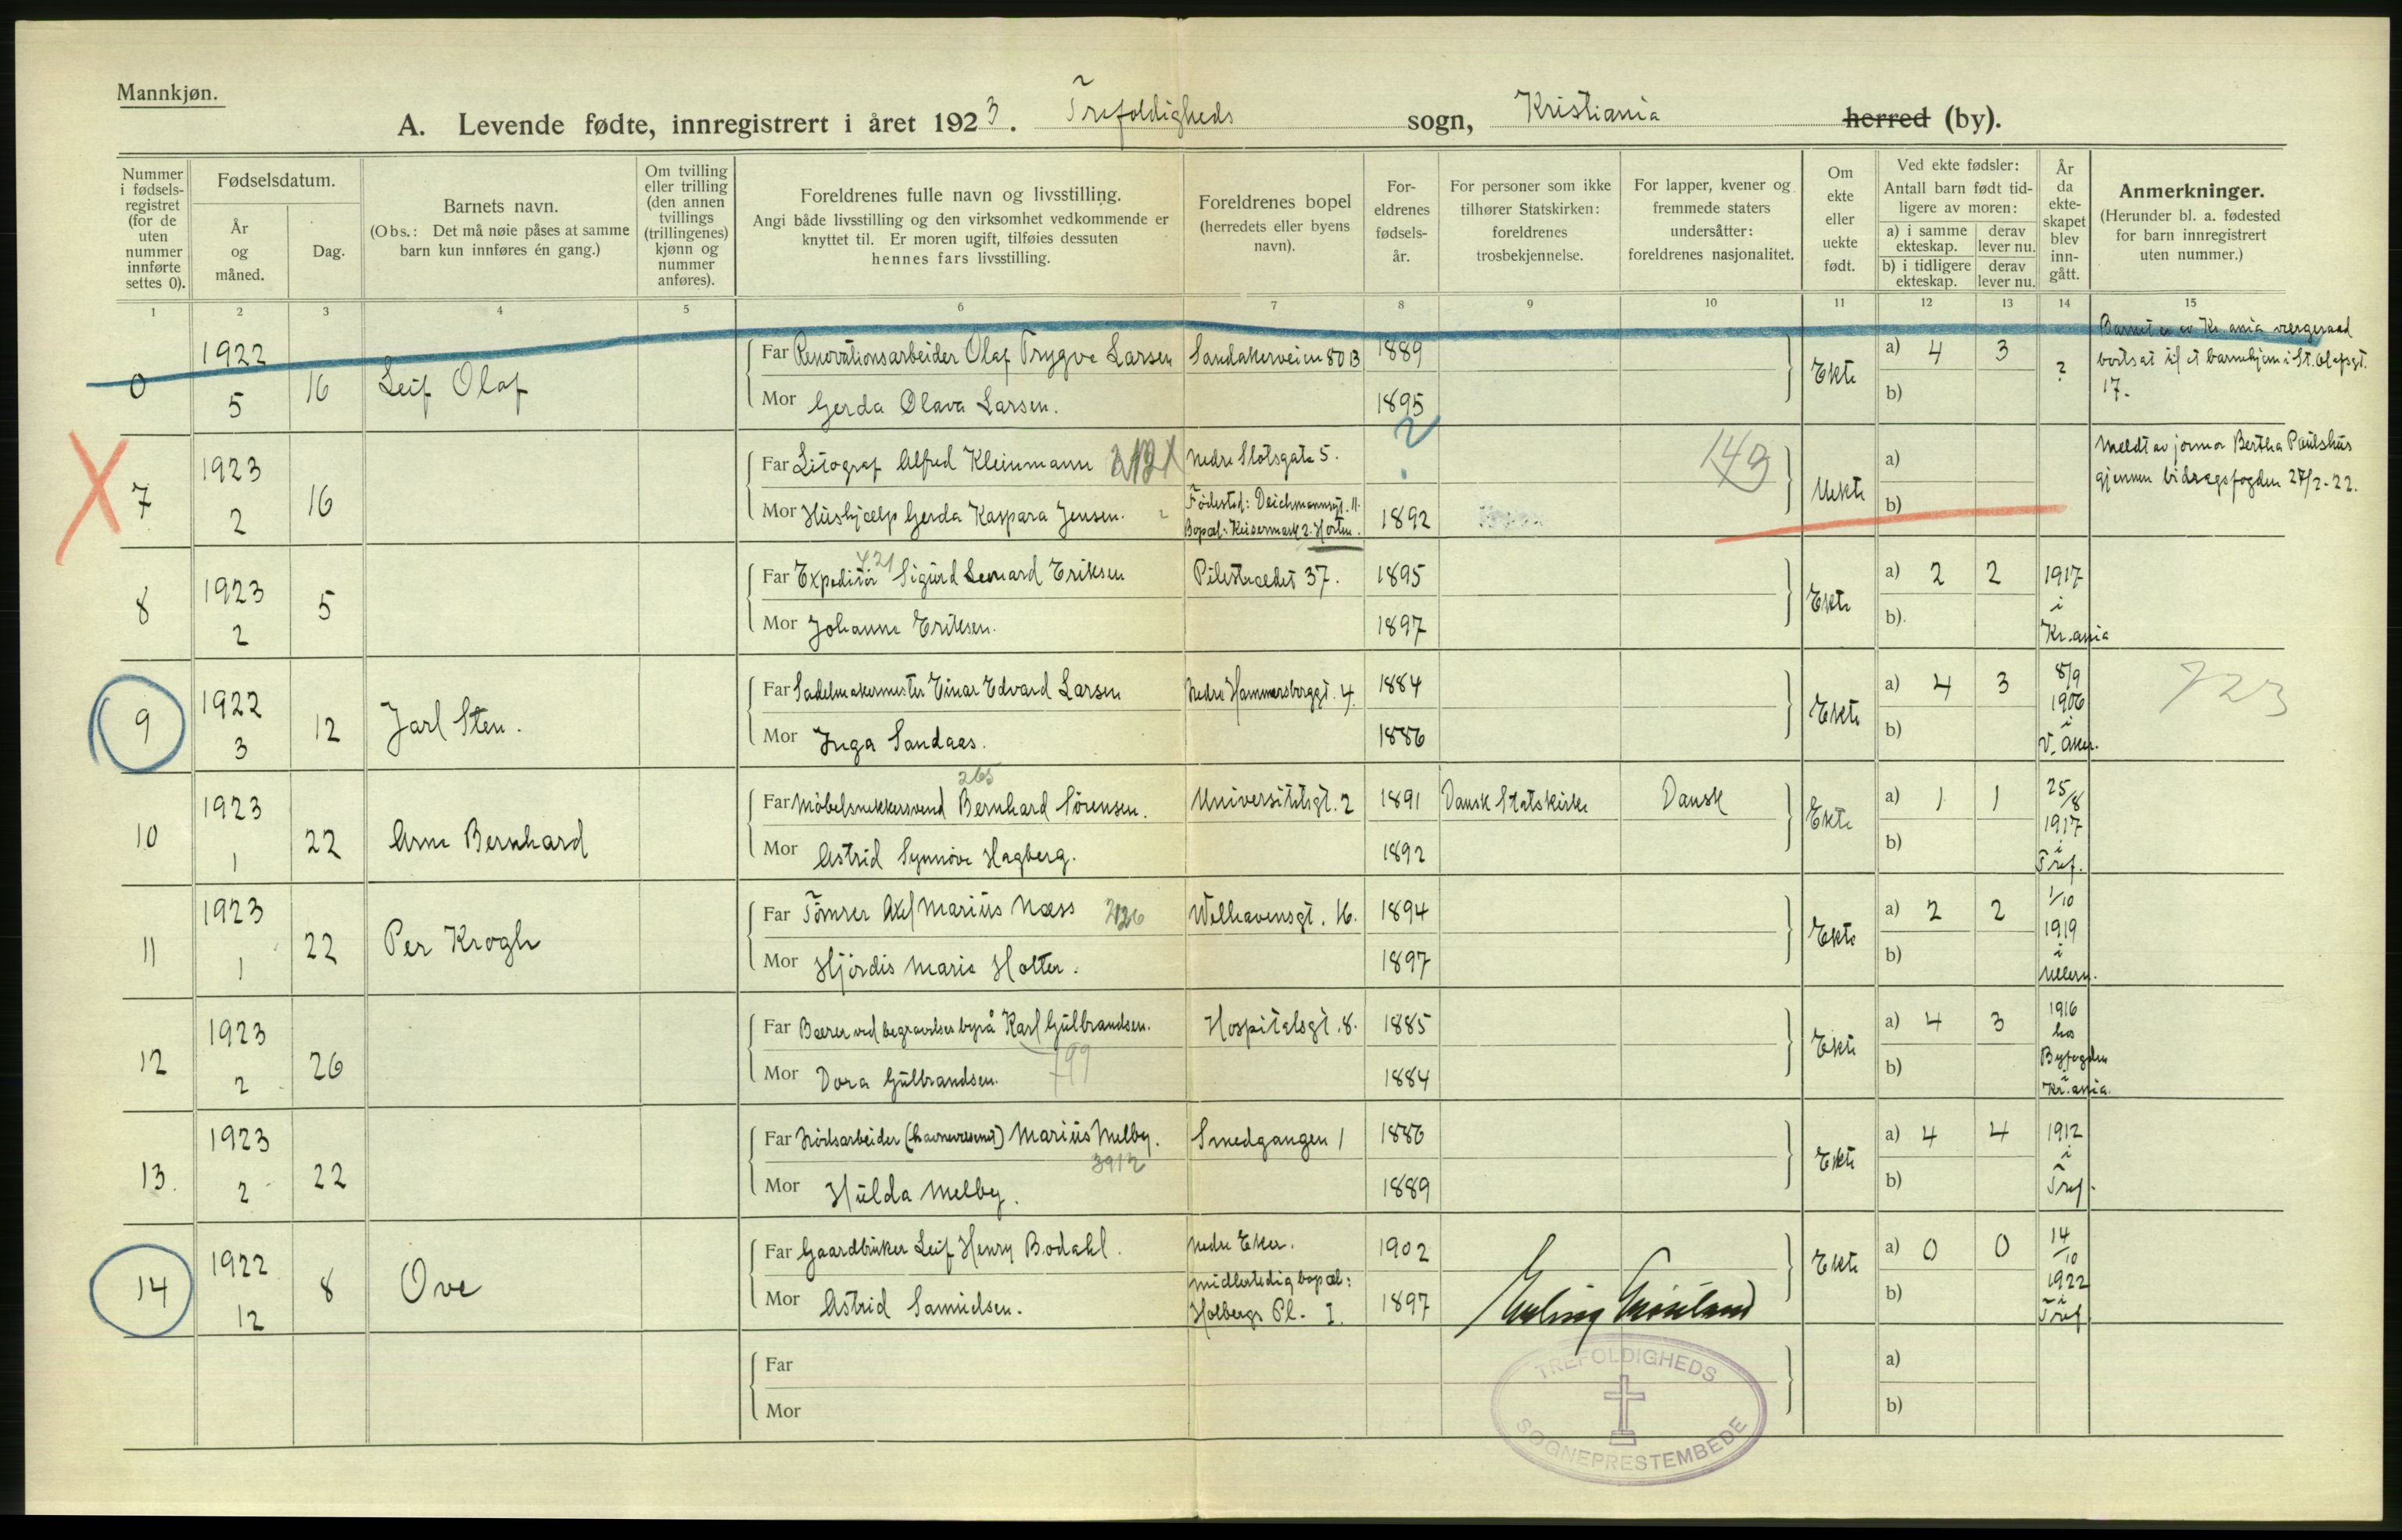 Mannkjøn.
A. Levende fødte, innregistrert i året 1923. Trefoldigheds sogn, Kristiania herred (by).
Nummer i fødsels-registret (for de uten nummer innførte settes 0).
Fødselsdatum.
År og måned.
Dag.
Barnets navn.
(Obs.: Det må nøie påses at samme barn kun innføres én gang.)
Om tvilling eller trilling (den annen tvillings (trillingenes) kjønn og nummer anføres).
Foreldrenes fulle navn og livsstilling.
Angi både livsstilling og den virksomhet vedkommende er knyttet til. Er moren ugift, tilføies dessuten hennes fars livsstilling.
Foreldrenes bopel
(herredets eller byens navn).
For-eldrenes fødsels-år.
For personer som ikke tilhører Statskirken: foreldrenes trosbekjennelse.
For lapper, kvener og fremmede staters undersåtter: foreldrenes nasjonalitet.
Om ekte eller uekte født.
Ved ekte fødsler:
Antall barn født tid-ligere av moren:
a) i samme ekteskap. derav lever nu.
b) i tidligere ekteskap. derav lever nu.
År da ekte-skapet blev inn-gått.
Anmerkninger.
(Herunder bl. a. fødested for barn innregistrert uten nummer.)
1 2 3 4 5 6 7 8 9 10 11 12 13 14 15
0 1922 5 16 Leif Olaf
Far Renovationsarbeider Olaf Trygve Larsen Sandakerveien 80 B 1889 Ekte a) 4 3 ?
Mor Gerda Olava Larsen. 1895 b)
Barnet er av Kr.ania vergeraad
bortsat til et barnehjem i St. Olafsgt.
17.
7 1923 2 16
Far Litograf Alfred Kleinmann Nedre Slotsgate 5. 2 149 Uekte a)
Mor Hushjælp Gerda Kaspara Jensen. Fødested: Deichmannsgt. 11. Bopæl: Keisermark 2. Horten. 1892 b)
Meldt av jormor Bertha Paulshus
gjennem bidragsfogden 27/2-22.
8 1923 2 5
421
Far Expeditør Sigurd Leonard Eriksen Pilestrædet 37. 1895 Ekte a) 2 2 1917 i Kr.ania
Mor Johanne Eriksen. 1897 b)
9 1922 3 12 Jarl Sten.
Far Sadelmakermester Einar Edvard Larsen Nedre Hammersborggt. 4. 1884 Ekte a) 4 3 8/9 1906 i V. Aker. 723
Mor Inga Sandaas. 1886 b)
10 1923 1 22 Arne Bernhard
265
Far Møbelsnekkersvend Bernhard Sørensen. Universitetsgt. 2 1891 Dansk Statskirke Dansk Ekte a) 1 1 25/8 1917 i Tref.
Mor Astrid Synnøve Hagberg. 1892 b)
11 1923 1 22 Per Krogh
Far Tømrer Axel Marius Næss Welhavensgt. 16. 1894 Ekte a) 2 2 1/10 1919 i Ullern.
Mor Hjørdis Marie Holter. 1897 b)
12 1923 2 26
Far Bærer ved begravelsesbyrå Karl Gulbrandsen. Hospitalsgt. 8. 1885 Ekte a) 4 3 1916 hos Byfogden i Kr.ania.
Mor Dora Gulbrandsen. 799 1884 b)
13. 1923 2 22
Far Nødsarbeider (havnevesenet) Marius Melby. Smedgangen 1 1886 Ekte a) 4 4 1912 i Tref.
3912
Mor Hulda Melby. 1889 b)
14 1922 12 8 Ove
Far Gaardbruker Leif Henry Bodahl. Nedre Eker. 1902 Ekte a) 0 0 14/10 1922 i Tref.
Mor Astrid Samuelsen. midlertidig bopæl: Holbergs Pl. I. 1897 b)
Far a)
Mor b)
TREFOLDIGHEDS
SOGNEPRESTEMBEDE